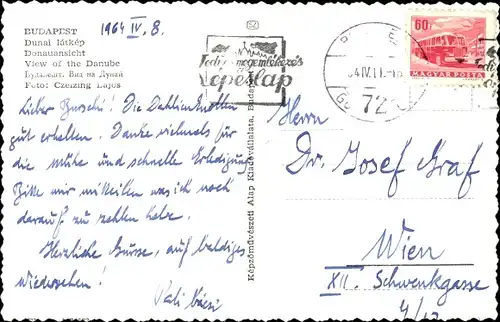 BUDAPEST
Dunai látkép
Donauansicht
View of the Danube
Будапешт. Вид на Дунай
Foto: Czeizing Lajos
1964 IV. 8.
Lieber Burschi! Die Dahlienknollen
gut erhalten. Danke vielmals für
die Mühe und schnelle Erledigung
Bitte mir mitteilen was ich noch
darauf zu zahlen habe.
Herzliche Grüsse, auf baldiges
wiedersehen!
Pali bácsi
Képzőművészeti Alap Kiadóvállalata, Budapest
képeslap
72
60f
MAGYAR POSTA
Herrn
Dr. Josef Graf
Wien
XII. Schwenkgasse